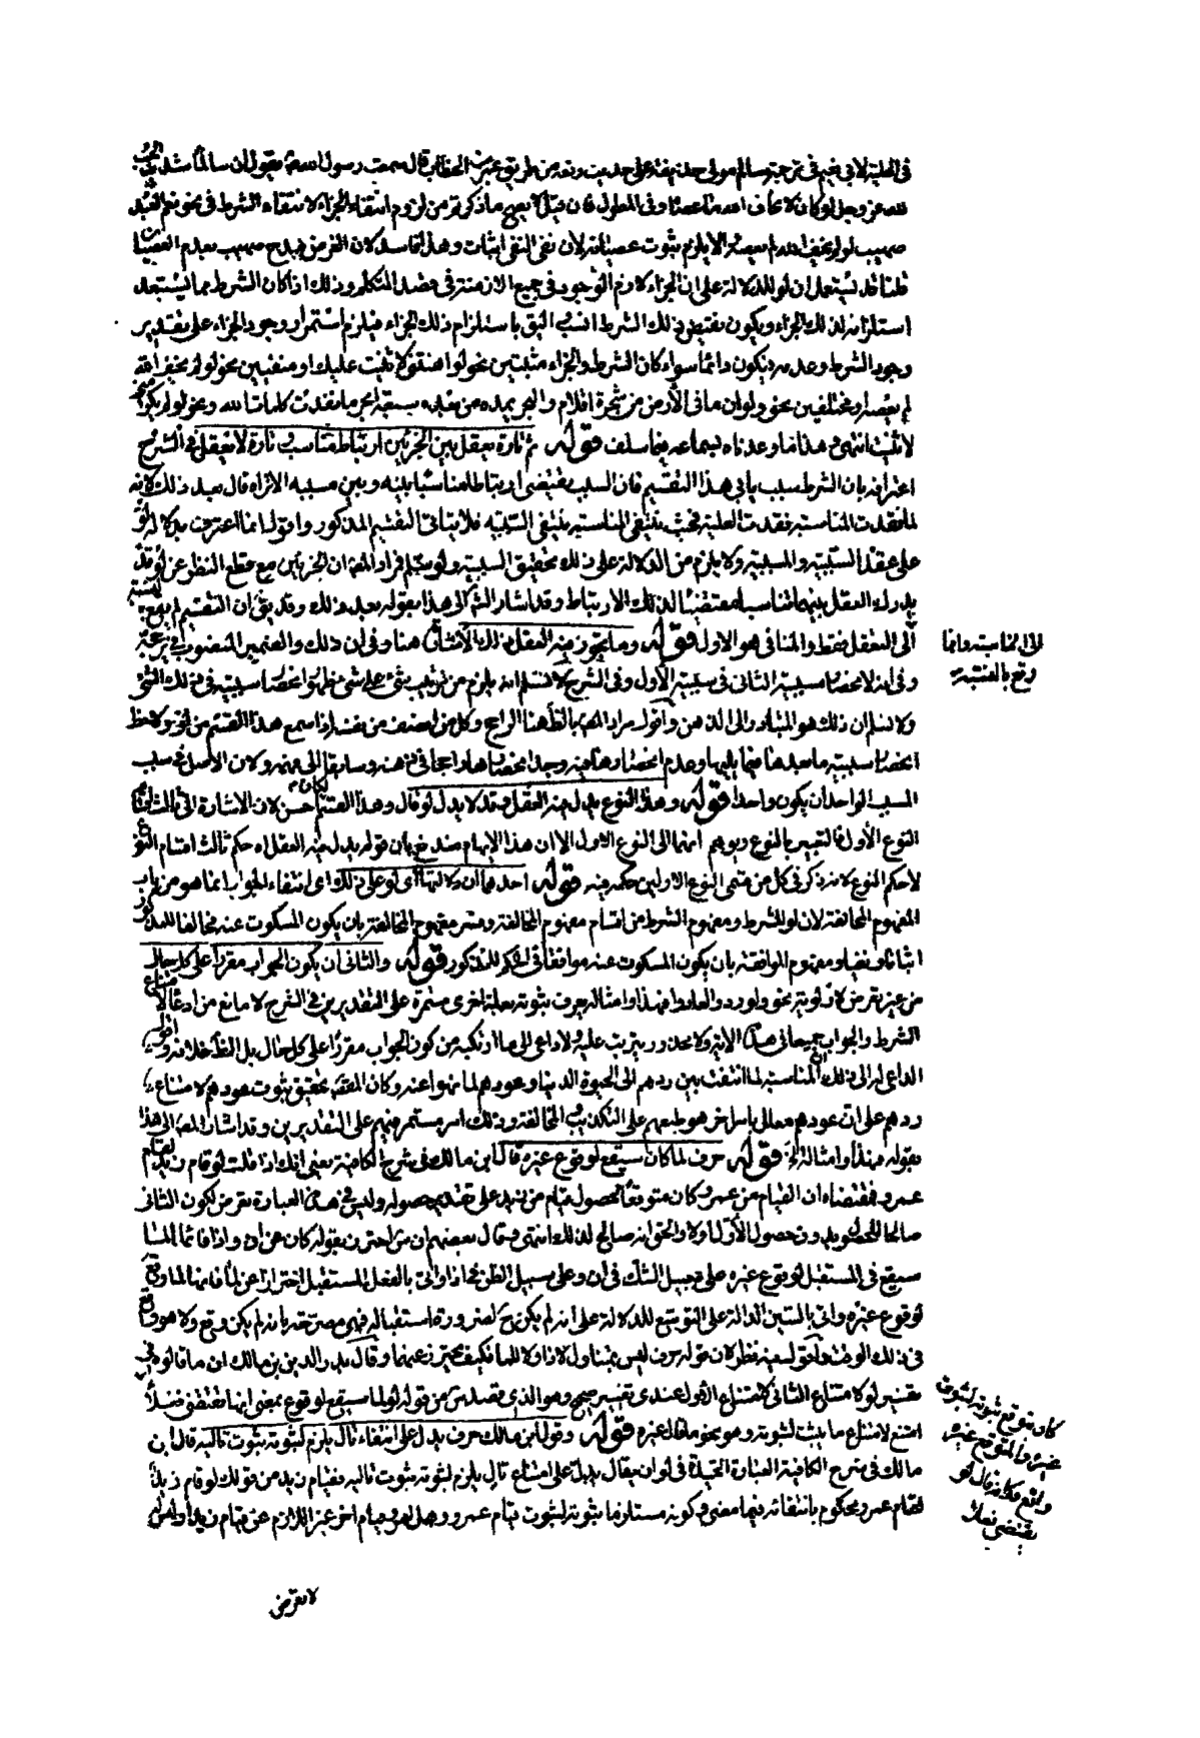 في الحلية لابي نعيم في ترجمة سالم مولى حذيفة على حديث وقد من طريق عمر بن الخطاب قال سمعت رسول الله يقول ان سالما شديد الحب
لله عز وجل لو كان لا يخاف الله ما عصاه وفي المطول فان قيل لا يصح ما ذكرتم من لزوم انتفاء الجزاء لانتفاء الشرط في نحو نعم العبد
صهيب لو لم يخف الله لم يعصه والا يلزم ثبوت عصيانه لان نفي النفي اثبات وهذا فاسد لان الغرض مدح صهيب بعدم العصيان
قلنا قد يستعمل ان ولو للدلالة على ان الجزاء لازم الوجود في جميع الازمنة في قصد المتكلم وذلك اذا كان الشرط مما يستبعد
استلزامه لذلك الجزاء ويكون نقيض ذلك الشرط انسب اليق باستلزام ذلك الجزاء فيلزم استمرار وجود الجزاء على تقدير
وجود الشرط وعدمه فيكون دائما سواء كان الشرط والجزاء مثبتين نحو لو اهنتني لاثنيت عليك او منفيين نحو لو لم يخف الله
لم يعصه او مختلفين نحو ولو ان ما في الأرض من شجرة اقلام والبحر يمده من بعده سبعة ابحر ما نفدت كلمات الله ونحو لو لم تكرمني
لاثنيت انتهى وهذا ما وعدناه بسماعه فيما سلف قوله ثم تارة يعقل بين الجزئين ارتباط مناسب وتارة لا يعقل في الشرح
اعترافه بان الشرط سبب يابى هذا التقسيم فان السبب يقتضي ارتباطا مناسبا بينه وبين مسببه الا تراه قال بعد ذلك لانه
لما فقدت المناسبة فقدت العلية فحيث ينتفي المناسبة ينتفي السببية فلا يتاتى التقسيم المذكور واقول انما اعترف بدلالة لو
على عقد السببية والمسببية ولا يلزم من الدلالة على ذلك تحقيق السببية ولو سلم فمراد المص ان الجزئين مع قطع النظر عن لو قد
يدرك العقل بينهما تناسبا مقتضيا لذلك الارتباط وقد اشار الشرح الى هذا بقوله بعد ذلك وقد يقى ان التقسيم لم يقع بالنسبة
الى التعقل فقط والمنافي هو الاول قوله وما يجوز فيه العقل ذلك الامثال هنا وفي ان ذلك والضمير المنصوب في
وفي انه لانحصار مسببية الثاني في سببية الأول وفي الشرح لا نسلم انه يلزم من ترتيب شيء على شيء ظهور انحصار سببية في ذلك الشيء
ولا نسلم ان ذلك هو المتبادر الى الذهن واقول مراد المص بالظ هنا الراجح وكل من انصف من نفسه اذا سمع هذا القسم من لو ولاحظ
انحصار سببية ما بعدها فيما يليها وعدم انحصارها فيه وجد انحصارها راجحا في ذهنه وسابقا الى فهمه ولان الأصل في سبب
المسبب الواحد ان يكون واحدا قوله وهذا النوع يدل فيه العقل قد لا يدل لو قال وهذا القسم لكان احسن لان الاشارة الى الثاني
النوع الأول فالتعبير بالنوع يوهم انها الى النوع الاول الا ان هذا الايهام مندفع بان قوله يدل فيه العقل اه حكم ثالث اقسام النوع
لا حكم النوع لانه ذكر في كل من قسمي النوع الاولين حكمه فيه قوله احدهما ان دلالتها اي لو على ذلك اي انتفاء الجواب انما هو من باب
المفهوم المخالفة لان لو للشرط ومفهوم الشرط من اقسام مفهوم المخالفة وفسر مفهوم المخالفة بان يكون المسكوت عنه مخالفا للمذكور
اثباتا ونفيا ومفهوم الموافقة بان يكون المسكوت عنه موافقا في الحكم للمذكور قوله والثاني ان يكون الجواب مقررا على كل حال
من غير تعرض لاولوية نحو ولو ردوا لعادوا فهذا وامثاله يعرف ثبوته بعلة اخرى مستمرة على التقديرين في الشرح لا مانع من ادعاء امتناع
الشرط والجواب جميعا في هذه الاية ولا محذور يترتب عليه ولا داعي الى ما ارتكبه من كون الجواب مقررا على كل حال بل الظ خلافه واقول
الداعي له الى ذلك ان المناسبة لما انتفت بين ردهم الى الحيوة الدنيا وعودهم لما نهوا عنه وكان القصد تحقيق ثبوت عودهم لا امتناع
ردهم على ان عودهم معلل بامر اخر هو طبعهم على التكذيب والمخالفة وذلك امر مستمر فيهم على التقديرين وقد اشار المص الى هذا
بقوله فهذا وامثاله الخ قوله حرف لما كان سيقع لوقوع غيره قال ابن مالك في شرح الكافية يعني انك اذا قلت لو قام زيد لقام
عمرو فمقتضاه ان القيام من عمرو كان متوقعا لحصول قيام من زيد على تقدير حصوله وليس في هذه العبارة تعرض لكون الثاني
صالحا للحصول بدون حصول الأول اولا والحق انه صالح لذلك انتهى وقال بعضهم ان س احترز بقوله كان عن ان واذا فانها لما
سيقع في المستقبل لوقوع غيره على سبيل الشك في ان وعلى سبيل الظن في اذا واتى بالفعل المستقبل احترازا عن لما فانها لما وقع
لوقوع غيره واتى بالسين الدالة على التوقع للدلالة على انه لم يكن ح لضرورة استقباله فهي مصرحة بانه لم يكن وقع ولا هو واقع
في ذلك الوقت واقول فيه نظر لان قوله حرف ليس يتناول لاذا ولا للما فكيف يحترز عنهما وقال بدر الدين بن مالك ان ما قالوه في
تفسير لو لامتناع الثاني لامتناع الأول عندي تفسير صحيح وهو الذي قصد س من قوله لو لما سيقع لوقوع بمعنى انها تقتضي فعلا
امتنع لامتناع ما يثبت لثبوته وهو نحو ما قال غيره قوله وقول ابن مالك حرف يدل على انتفاء تال يلزم لثبوته ثبوت تاليه قال ابن
مالك في شرح الكافية العبارة الجيدة في لو ان يقال يدل على امتناع تال يلزم لثبوته ثبوت تاليه فقيام زيد من قولك لو قام زيد
لقام عمرو محكوم بانتفائه فيما مضى وكونه مستلزما ثبوته لثبوت قيام عمرو وهل لعمرو قيام اخر غير اللازم عن قيام زيد اوليس
لا تعرض
الى المناسبة وانما
وقع بالنسبة
كان يتوقع ثبوته لثبوت
غيره والمتوقع غير
واقع فكانه قال لو
يقتضي فعلا